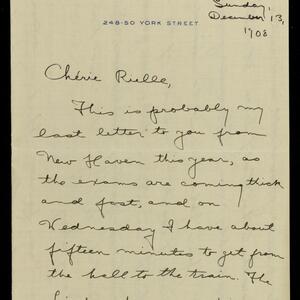 Sunday,
248-50 YORK STREET
December 13,
1908
Chérie Rielle,
This is probably my
last letter to you from
New Haven this year, as
the exams are coming thick
and fast, and on
Wednesday I have about
fifteen minutes to get from
the hall to the train. The